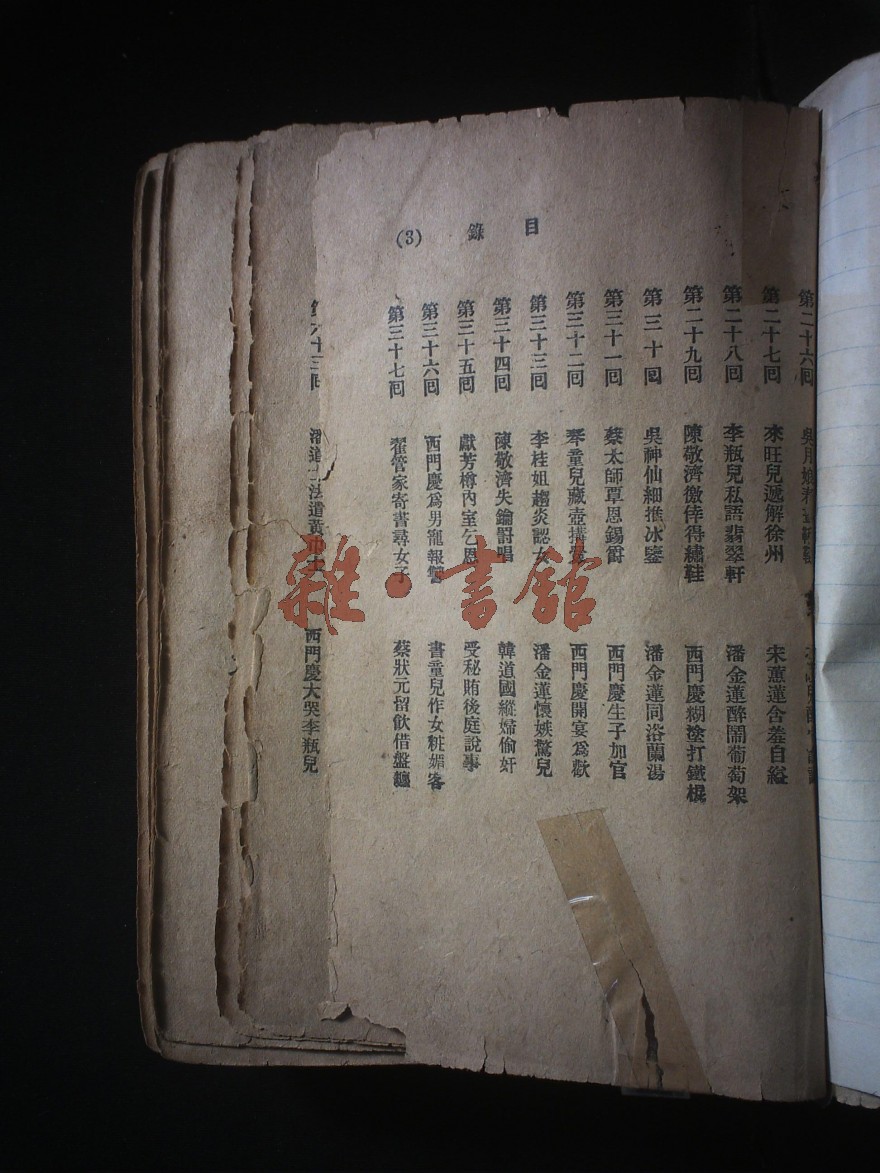 目錄 (3)
第二十六回 吳月娘
第二十七回 來旺兒遞解徐州 宋蕙蓮含羞自縊
第二十八回 李瓶兒私語翡翠軒 潘金蓮醉鬧葡萄架
第二十九回 陳敬濟徼倖得繡鞋 西門慶糊塗打鐵棍
第三十回 吳神仙細推冰鑒 潘金蓮同浴蘭湯
第三十一回 蔡太師覃恩錫爵 西門慶生子加官
第三十二回 琴童兒藏壺搆 西門慶開宴爲歡
第三十三回 李桂姐趨炎認女 潘金蓮懷嫉驚兒
第三十四回 陳敬濟失鑰罰唱 韓道國縱婦偷奸
第三十五回 獻芳樽內室乞恩 受秘賄後庭說事
第三十六回 西門慶爲男寵報讐 書童兒作女粧媚客
第三十七回 翟管家寄書尋女子 蔡狀元留飲借盤纏
第六十三回 潘道士法遣黃巾士 西門慶大哭李瓶兒
雜·書館